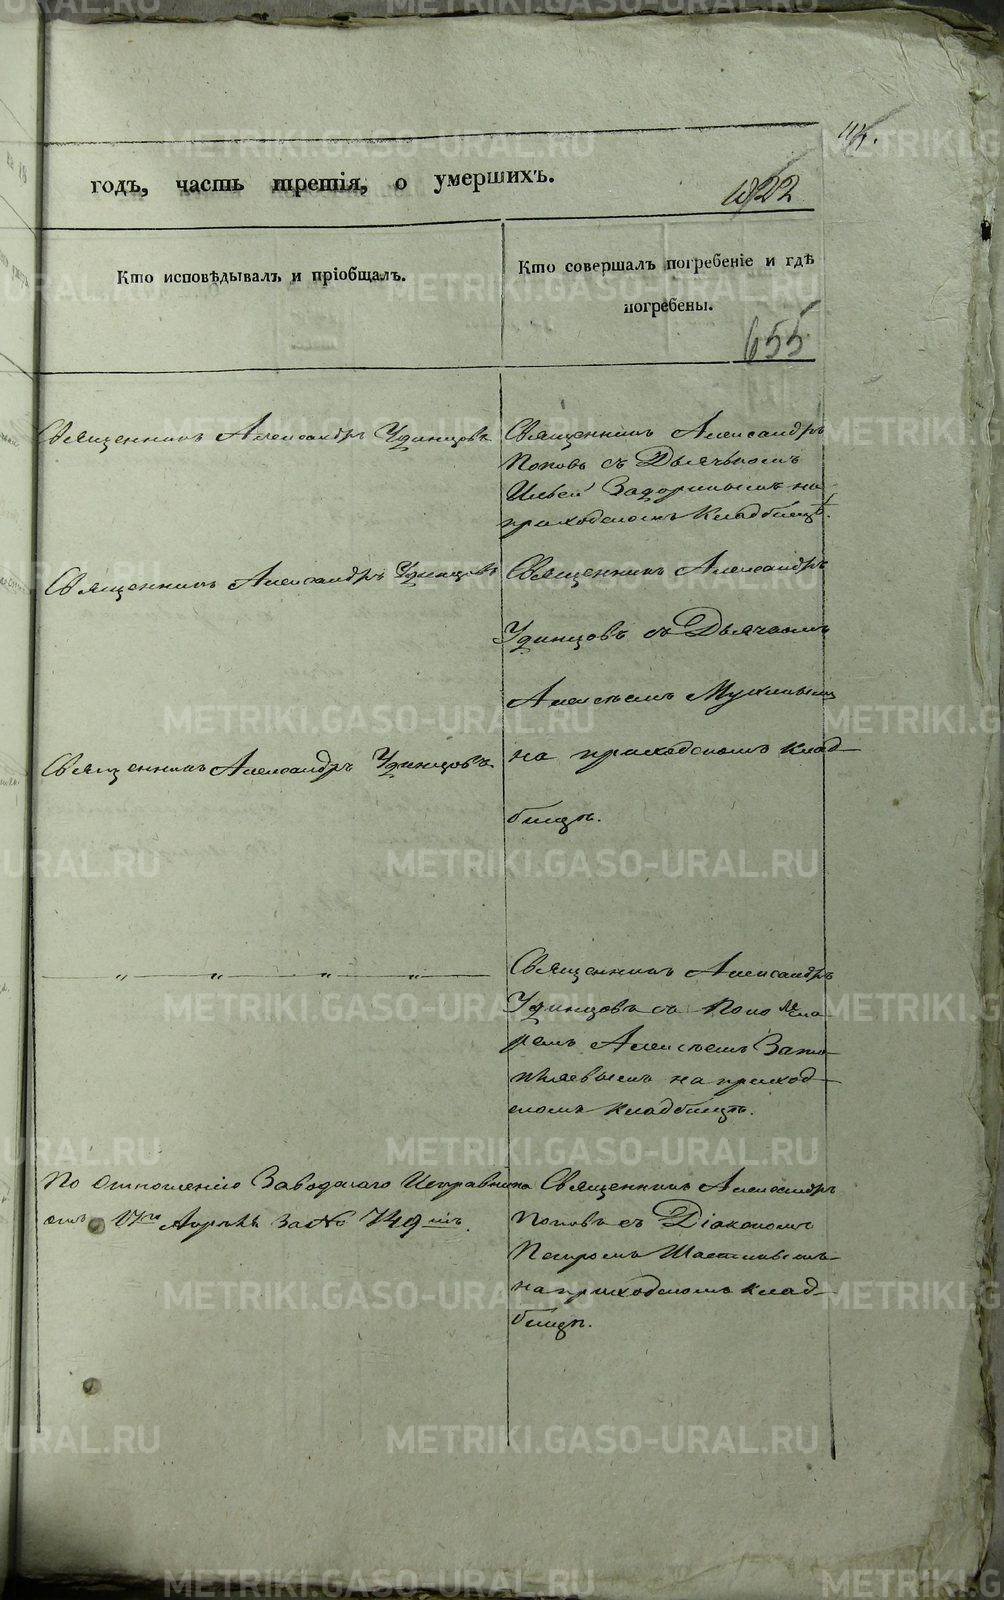 годъ, часть третія, о умершихъ.
1822
Кто исповѣдывалъ и пріобщалъ.
Кто совершалъ погребеніе и гдѣ
погребены.
655
Священникъ Александръ Удинцовъ
Священникъ Александръ
Поповъ съ Дьячькомъ
Ильей Задоринымъ на
приходскомъ Кладбищѣ.
Священникъ Александръ Удинцовъ
Священникъ Александръ
Удинцовъ съ Дьячкомъ
Алексѣемъ
на приходскомъ клад-
бищѣ.
Священникъ Александръ Удинцовъ
Священникъ Александръ
Удинцовъ съ Поно ма-
ремъ Алексѣемъ Вато-
на приход-
скомъ кладбищѣ.
По отношенію Заводскаго Исправника
отъ 17го Апрѣля за № 749мъ.
Священникъ Александръ
Поповъ съ Діакономъ
Петромъ
на приходскомъ клад-
бищѣ.
METRIKI.GASO-URAL.RU